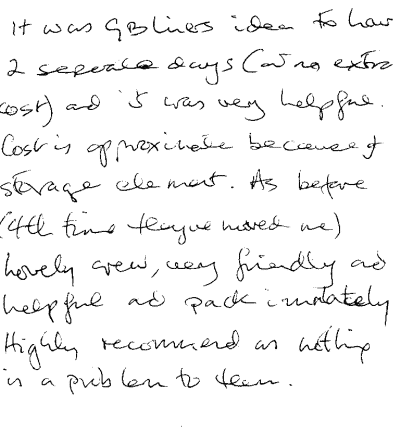 It was GBliners idea to have
2 seperate days (at no extra
cost) and it was very helpful.
Cost is approximate because of
storage element. As before
(4th time they've moved me)
Lovely crew, very friendly and
helpful and pack immaculately
Highly recommend as nothing
is a problem to them.